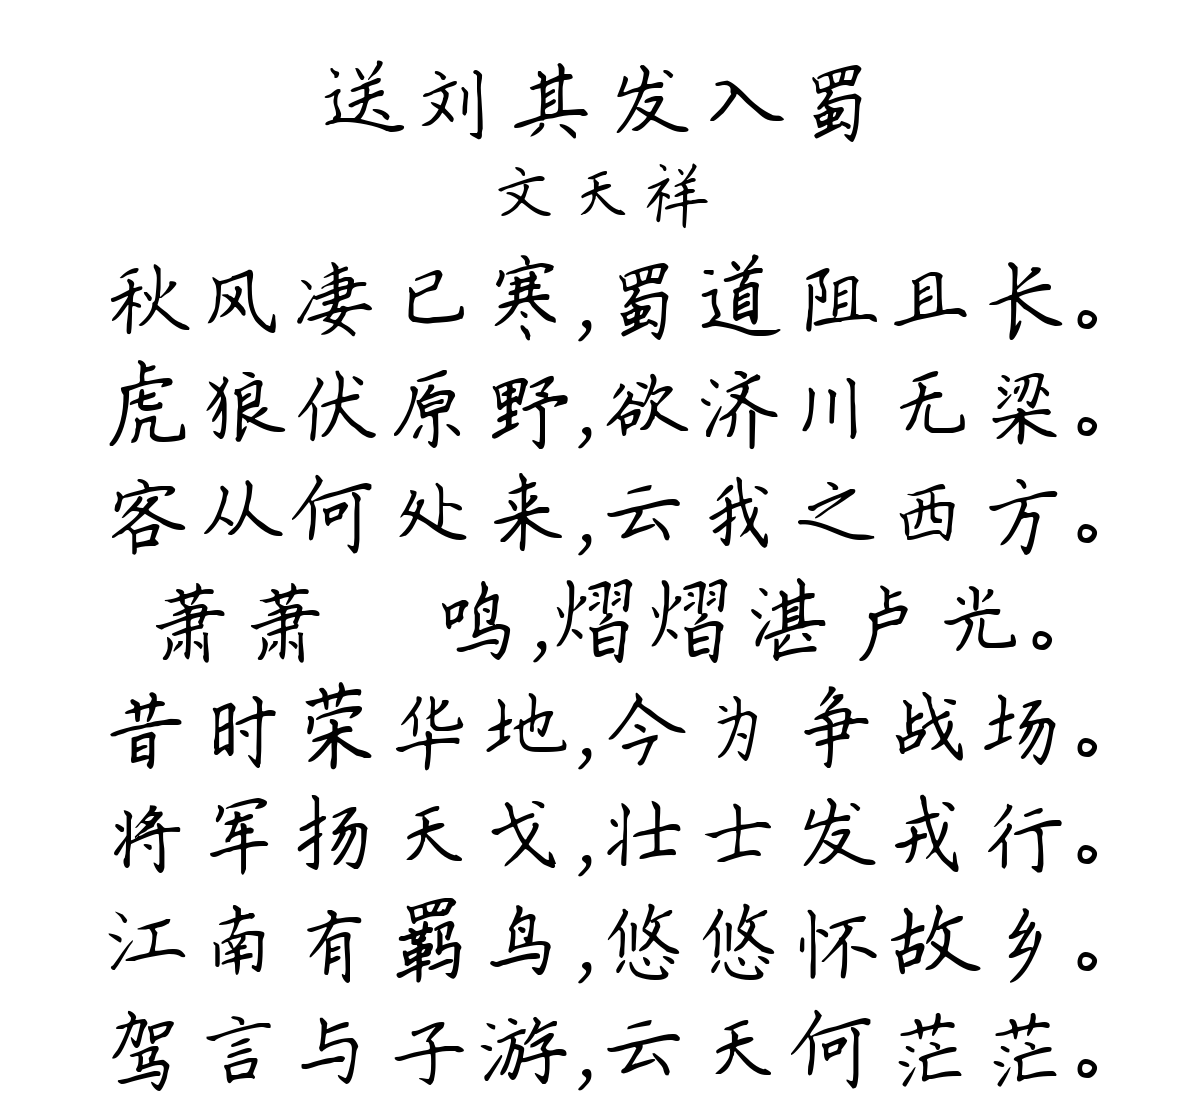 送刘其发入蜀
文天祥
秋风凄已寒,蜀道阻且长。
虎狼伏原野,欲济川无梁。
客从何处来,云我之西方。
萧萧 鸣,熠熠湛卢光。
昔时荣华地,今为争战场。
将军扬天戈,壮士发戎行。
江南有羁鸟,悠悠怀故乡。
驾言与子游,云天何茫茫。